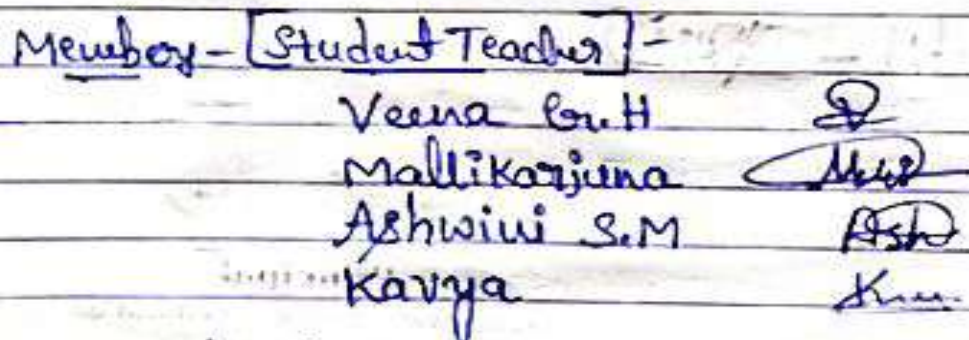 Members - [Student Teacher] -
Veena G.H
Mallikarjuna
Ashwini S.M Ash
Kavya